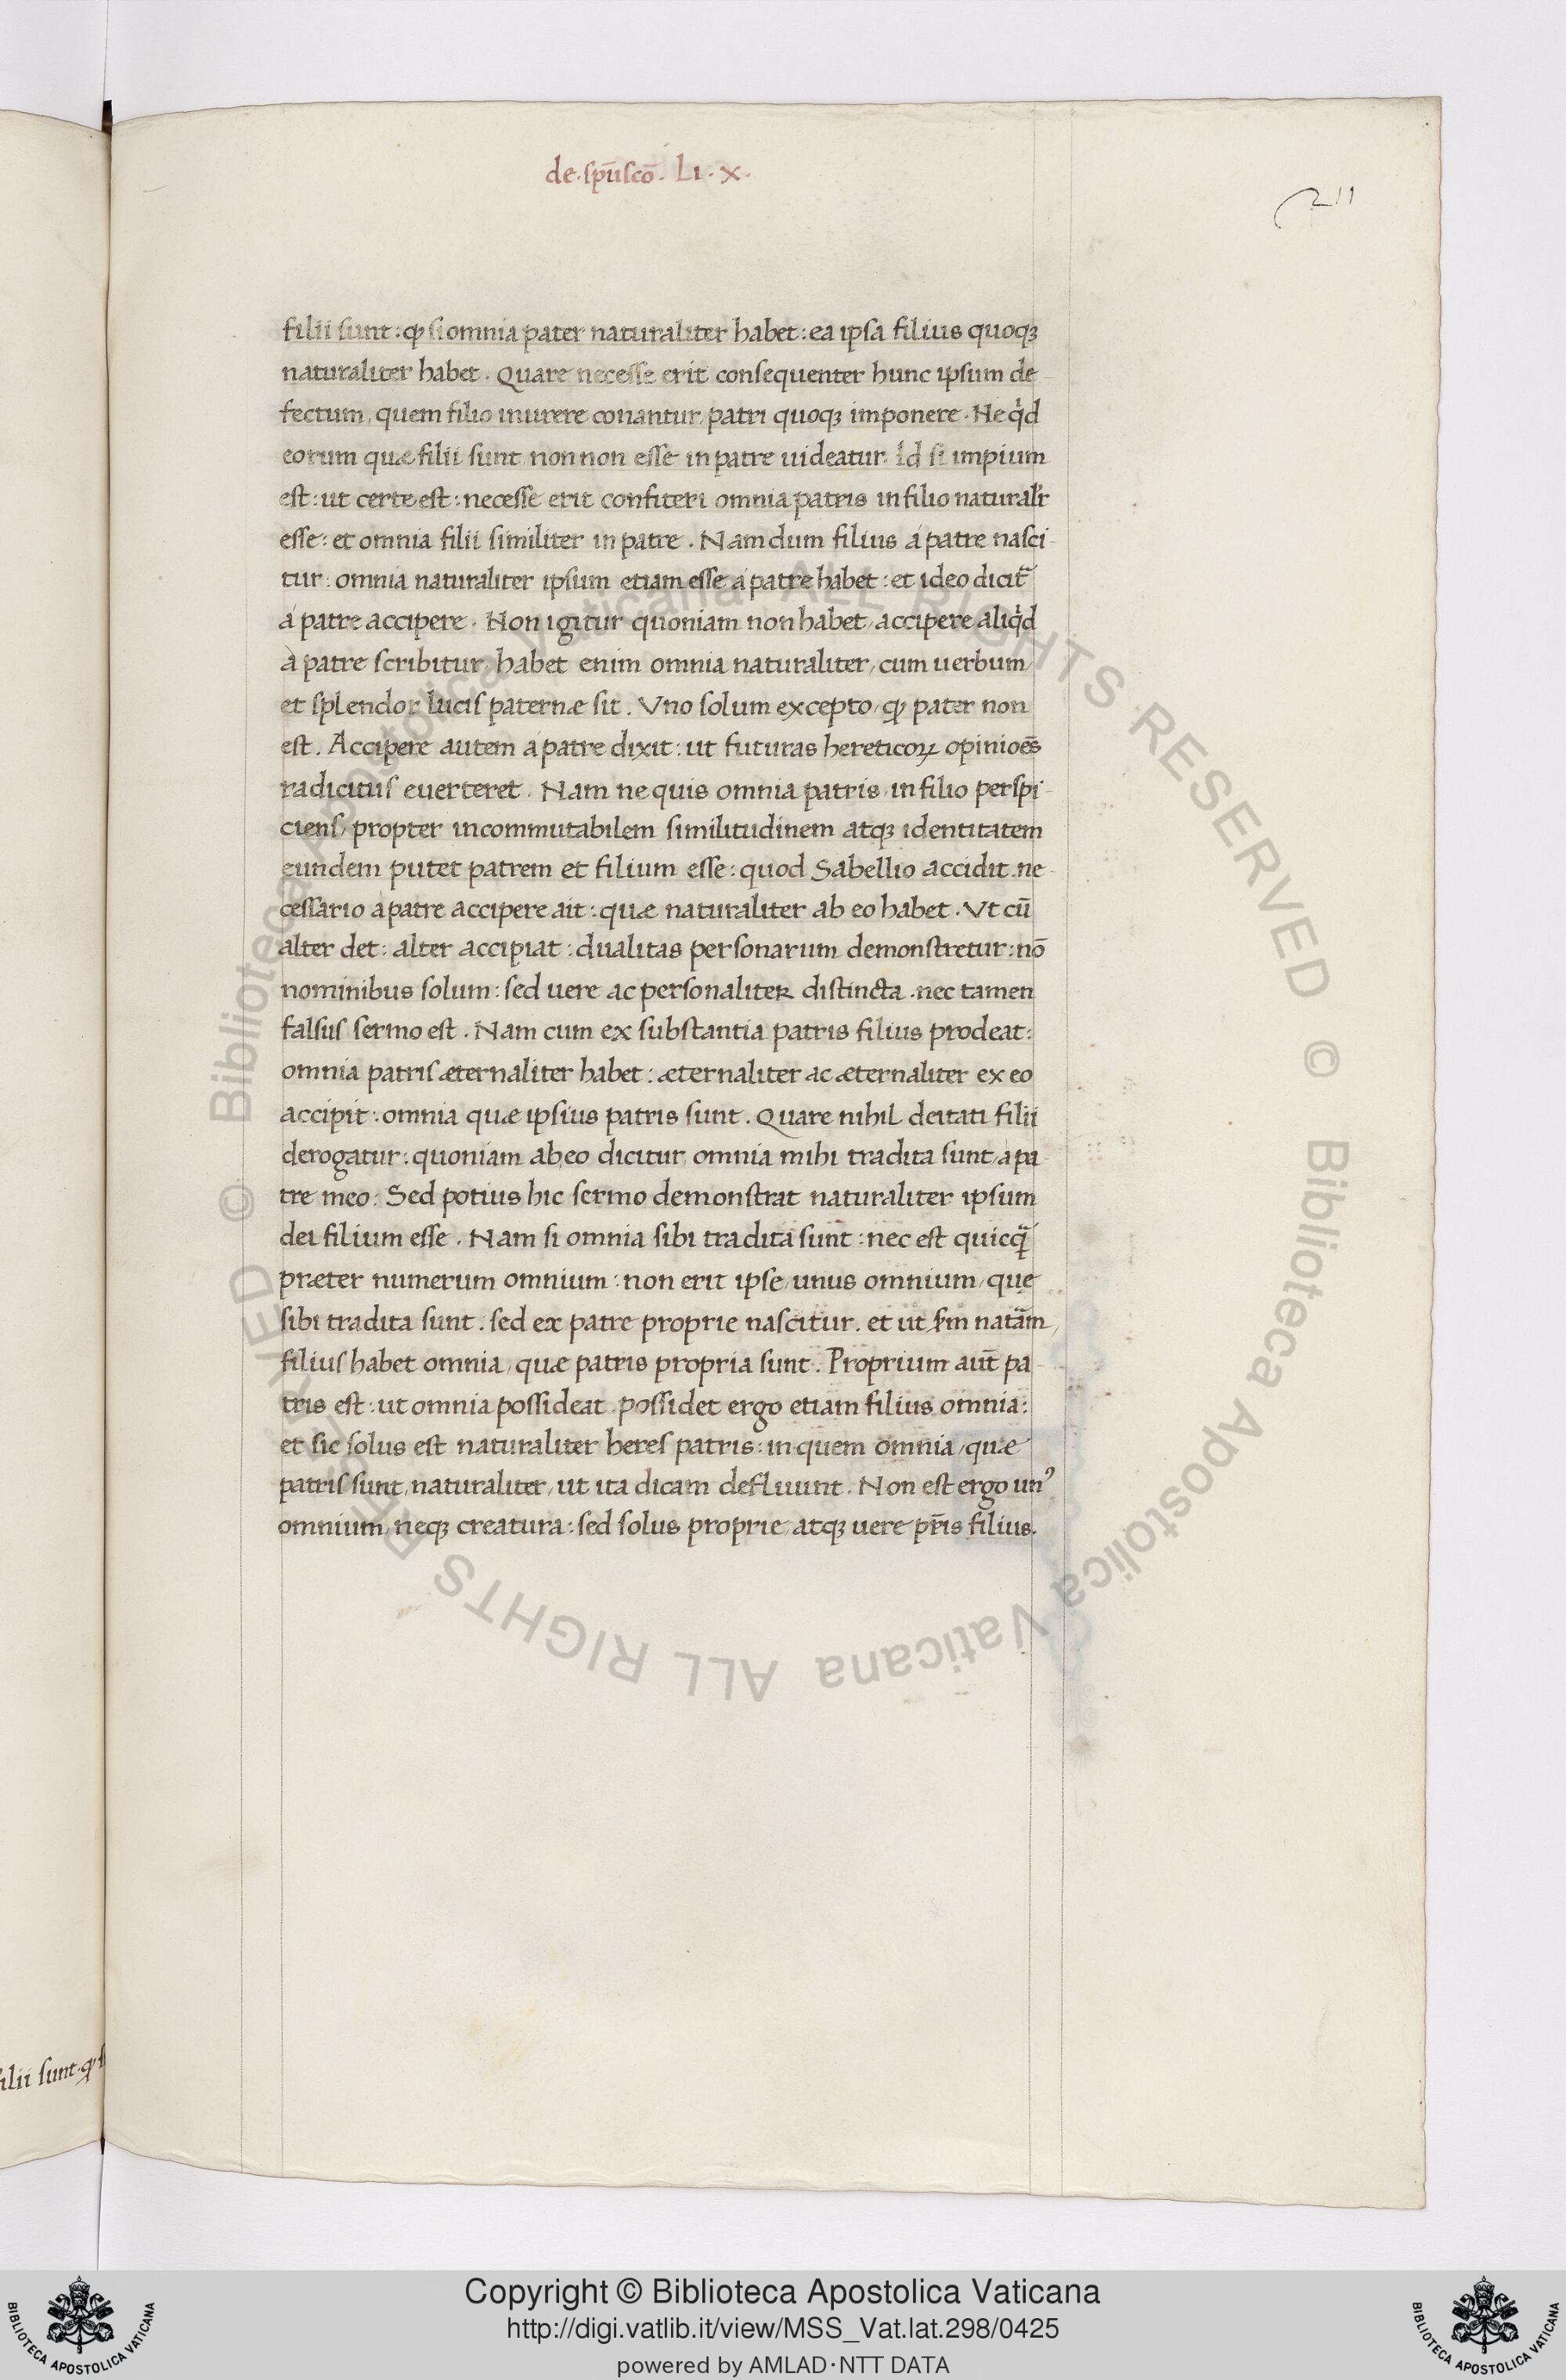 de. sp̄u sc̄o. Li. x.
211
filii sunt: ꝙ si omnia pater naturaliter habet: ea ipsa filius quoqꝫ
naturaliter habet. Quare necesse erit consequenter hunc ipsum de-
fectum, quem filio inurere conantur, patri quoqꝫ imponere. Ne qͥd
eorum quæ filii sunt, non non esse in patre uideatur. Id si impium
est: ut certe est: necesse erit confiteri omnia patris in filio naturalr̄
esse: et omnia filii similiter in patre. Nam dum filius á patre nasci-
tur: omnia naturaliter ipsum etiam esse á patre habet: et ideo dicit᷑
á patre accipere. Non igitur quoniam non habet, accipere aliqͥd
à patre scribitur, habet enim omnia naturaliter, cum uerbum,
et splendor lucis paternæ sit. Vno solum excepto, ꝙ pater non
est. Accipere autem á patre dixit: ut futuras hereticoꝝ opinioēs
radicitus euerteret. Nam ne quis omnia patris in filio perspi-
ciens, propter incommutabilem similitudinem atqꝫ identitatem
eundem putet patrem et filium esse: quod Sabellio accidit. ne-
cessario à patre accipere ait: quæ naturaliter ab eo habet. Vt cū
alter det: alter accipiat: dualitas personarum demonstretur: nō
nominibus solum: sed uere ac personaliter distincta. nec tamen
falsus sermo est. Nam cum ex substantia patris filius prodeat:
omnia patris æternaliter habet: æternaliter ac æternaliter ex eo
accipit: omnia quæ ipsius patris sunt. Quare nihil deitati filii
derogatur: quoniam ab eo dicitur, omnia mihi tradita sunt, à pa
tre meo: Sed potius hic sermo demonstrat naturaliter ipsum
dei filium esse. Nam si omnia sibi tradita sunt: nec est quicq̄
præter numerum omnium: non erit ipse, unus omnium, quę
sibi tradita sunt. sed ex patre proprie nascitur. et ut s̄m nat᷑am,
filius habet omnia, quæ patris propria sunt. Proprium aut̄ pa-
tris est: ut omnia possideat. possidet ergo etiam filius omnia:
et sic solus est naturaliter heres patris: in quem omnia, quæ
patris sunt, naturaliter, ut ita dicam defluunt. Non est ergo unꝰ
omnium, neqꝫ creatura: sed solus proprie, atqꝫ uere pr̄is filius.
filii sunt. ꝙ
© Biblioteca Apostolica Vaticana ALL RIGHTS RESERVED © Biblioteca Apostolica Vaticana ALL RIGHTS RESERVED
Copyright © Biblioteca Apostolica Vaticana
http://digi.vatlib.it/view/MSS_Vat.lat.298/0425
powered by AMLAD·NTT DATA
BIBLIOTECA APOSTOLICA VATICANA
BIBLIOTECA APOSTOLICA VATICANA